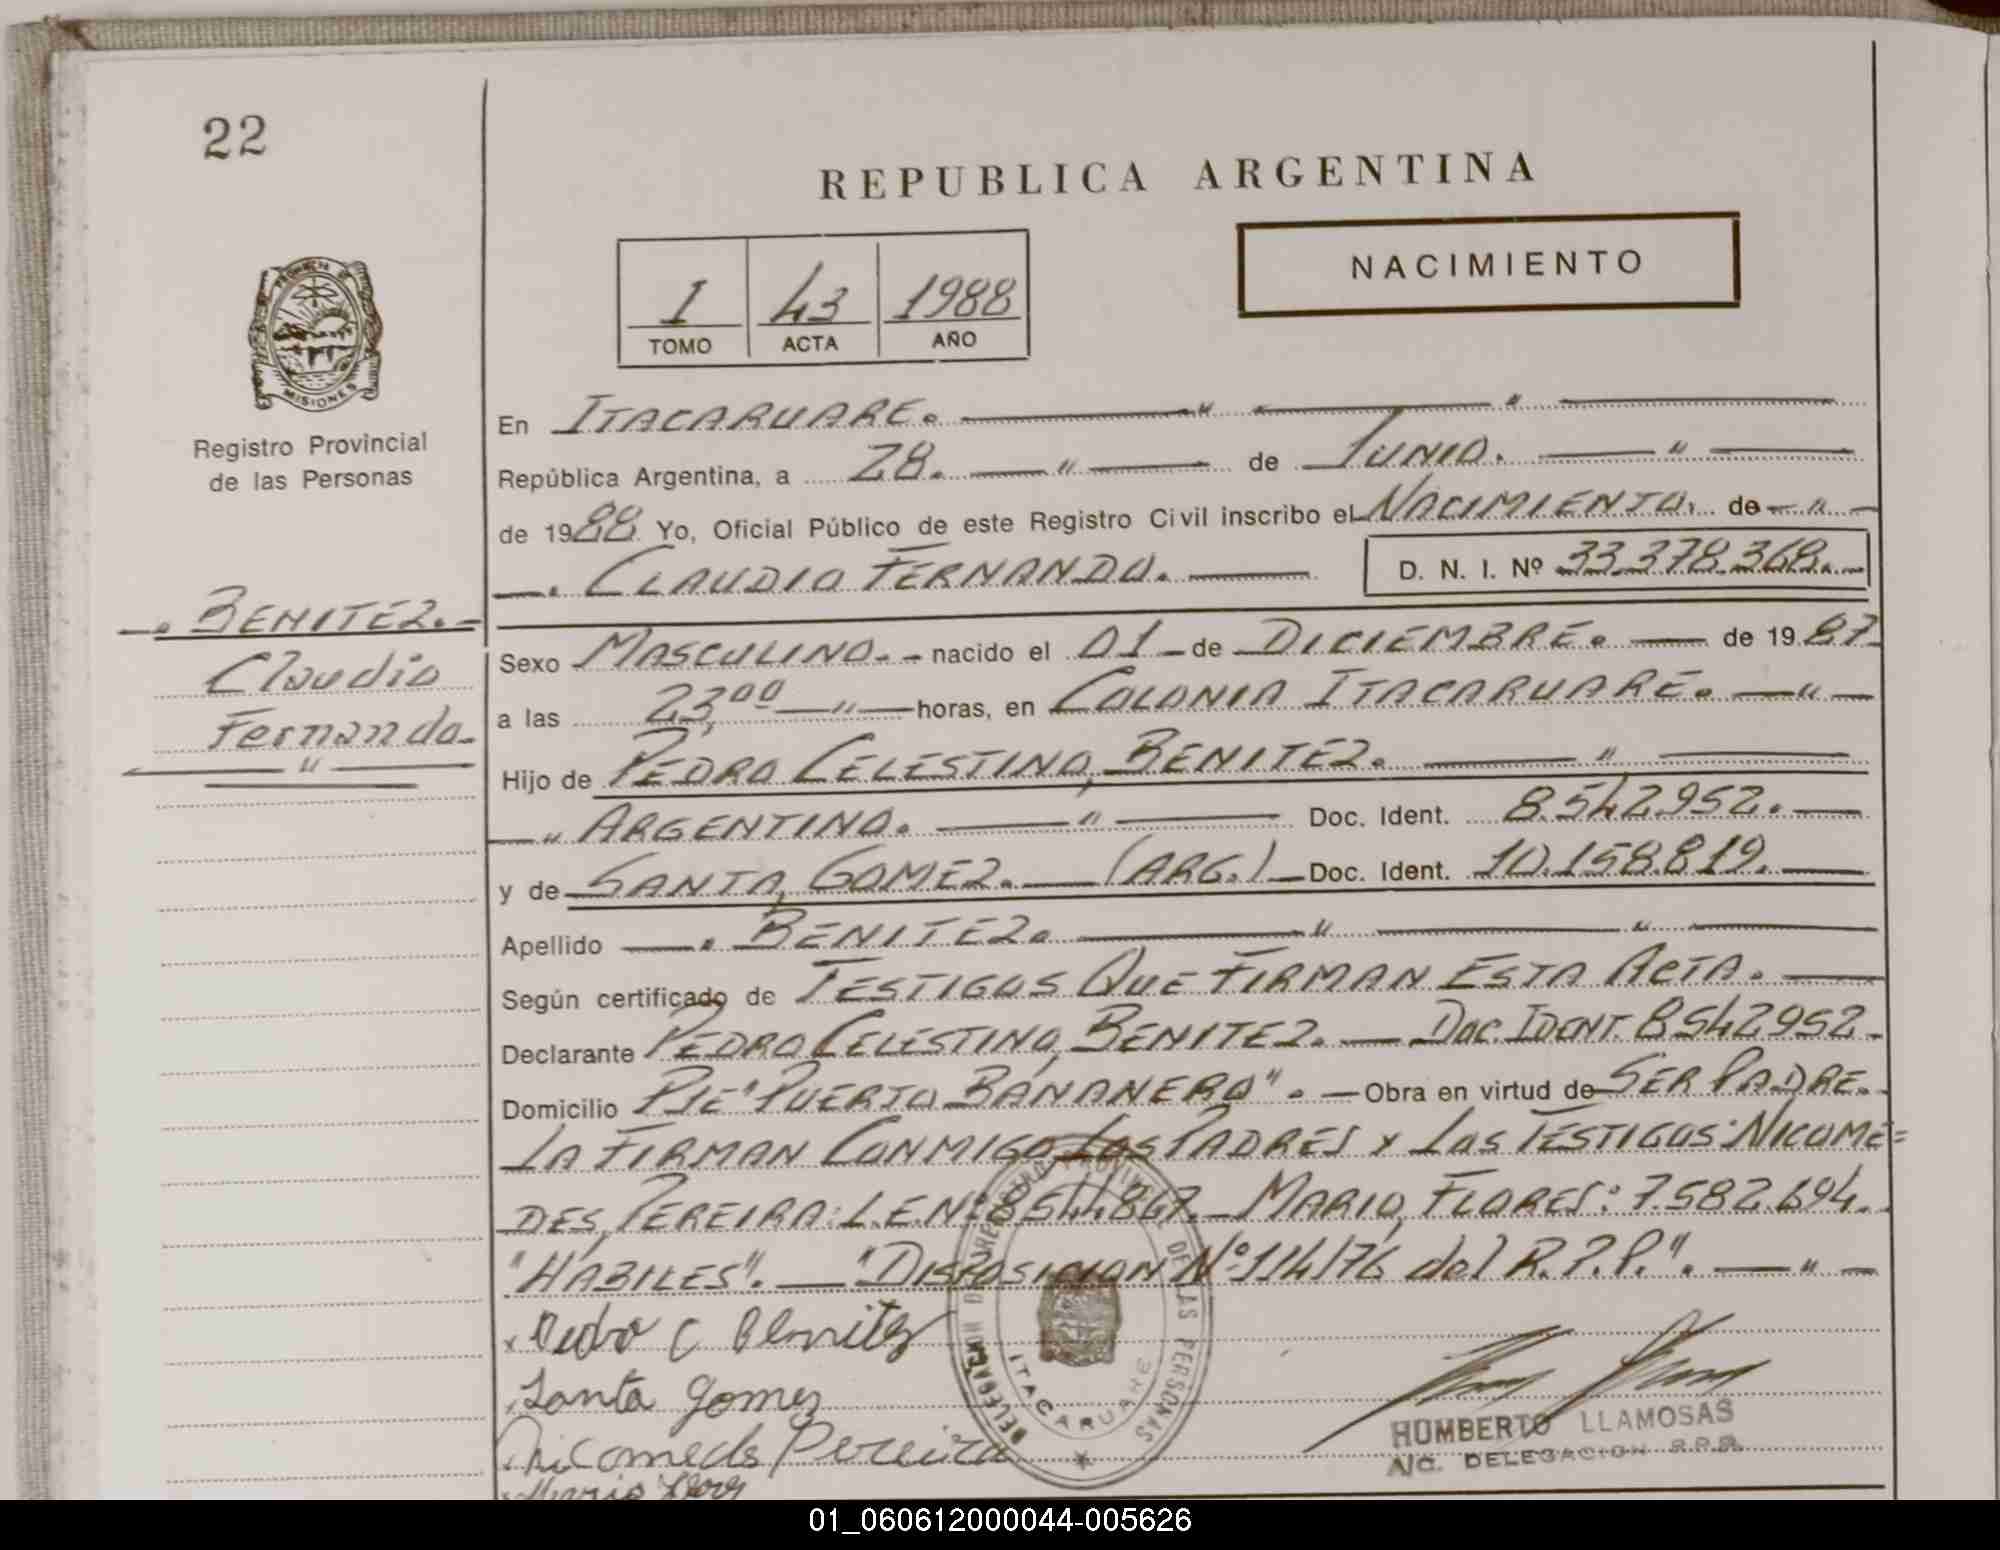 22
REPUBLICA ARGENTINA
NACIMIENTO
I 43 1988
TOMO ACTA AÑO
PROVINCIA DE
MISIONES
Registro Provincial
de las Personas
BENITEZ.
Claudio
Fernando.
En ITACARUARE.
República Argentina, a 28. de JUNIO.
de 1988 Yo, Oficial Público de este Registro Civil inscribo el NACIMIENTO. de
CLAUDIO FERNANDO. D. N. I. Nº 33.378.368.
Sexo MASCULINO. nacido el 01 de DICIEMBRE. de 1987
a las 23,00 horas, en COLONIA ITACARUARE.
Hijo de PEDRO CELESTINO, BENITEZ.
ARGENTINO. Doc. Ident. 8.542952.
y de SANTA, GOMEZ. (ARG.) Doc. Ident. 10.158.819.
Apellido BENITEZ.
Según certificado de TESTIGOS QUE FIRMAN ESTA ACTA.
Declarante PEDRO CELESTINO, BENITEZ. DOC. IDENT. 8542952.
Domicilio PJE "PUERTO BANANERO". Obra en virtud de SER PADRE.
LA FIRMAN CONMIGO LOS PADRES y LOS TESTIGOS: NICOME=
DES, PEREIRA: L.E.Nº 8544.867. MARIO, FLORES: 7.582.694.
"HABILES". "DISPOSICION Nº 114/76 del R.P.P.".
Pedro C Benitez
Santa Gomez
Nicomedes Pereira
Mario Flores
DELEGACION DEL REGISTRO PROVINCIAL DE LAS PERSONAS
ITACARUARE
HUMBERTO LLAMOSAS
A/C. DELEGACION R.P.P.
01_060612000044-005626